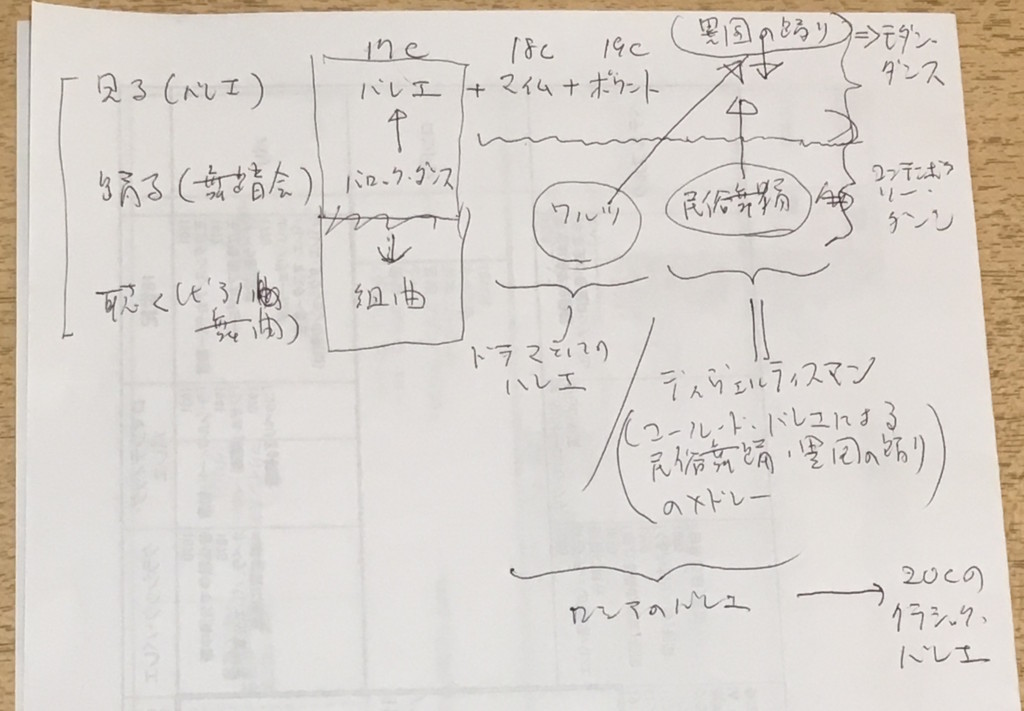 17C 18C 19C (異国の踊り) ⇒モダン・
ダンス
見る(バレエ) バレエ + マイム + ポワント
踊る(舞踏会) バロック・ダンス ワルツ 民俗舞踊
コンテンポラ
リー・
ダンス
聴く 組曲
舞曲)
ドラマティック
バレエ
ディヴェルティスマン
(コール・ド・バレエによる
民俗舞踊・異国の踊り
のメドレー)
ロシアのバレエ → 20Cの
クラシック・
バレエ